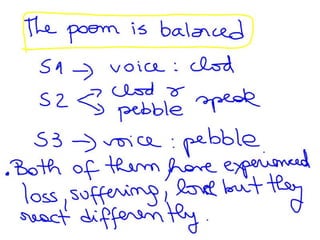 The poem is balanced
S1 → voice : clod
S2 → clod & pebble speak
S3 → voice : pebble
. Both of them have experienced
loss, suffering, love but they
react differently.